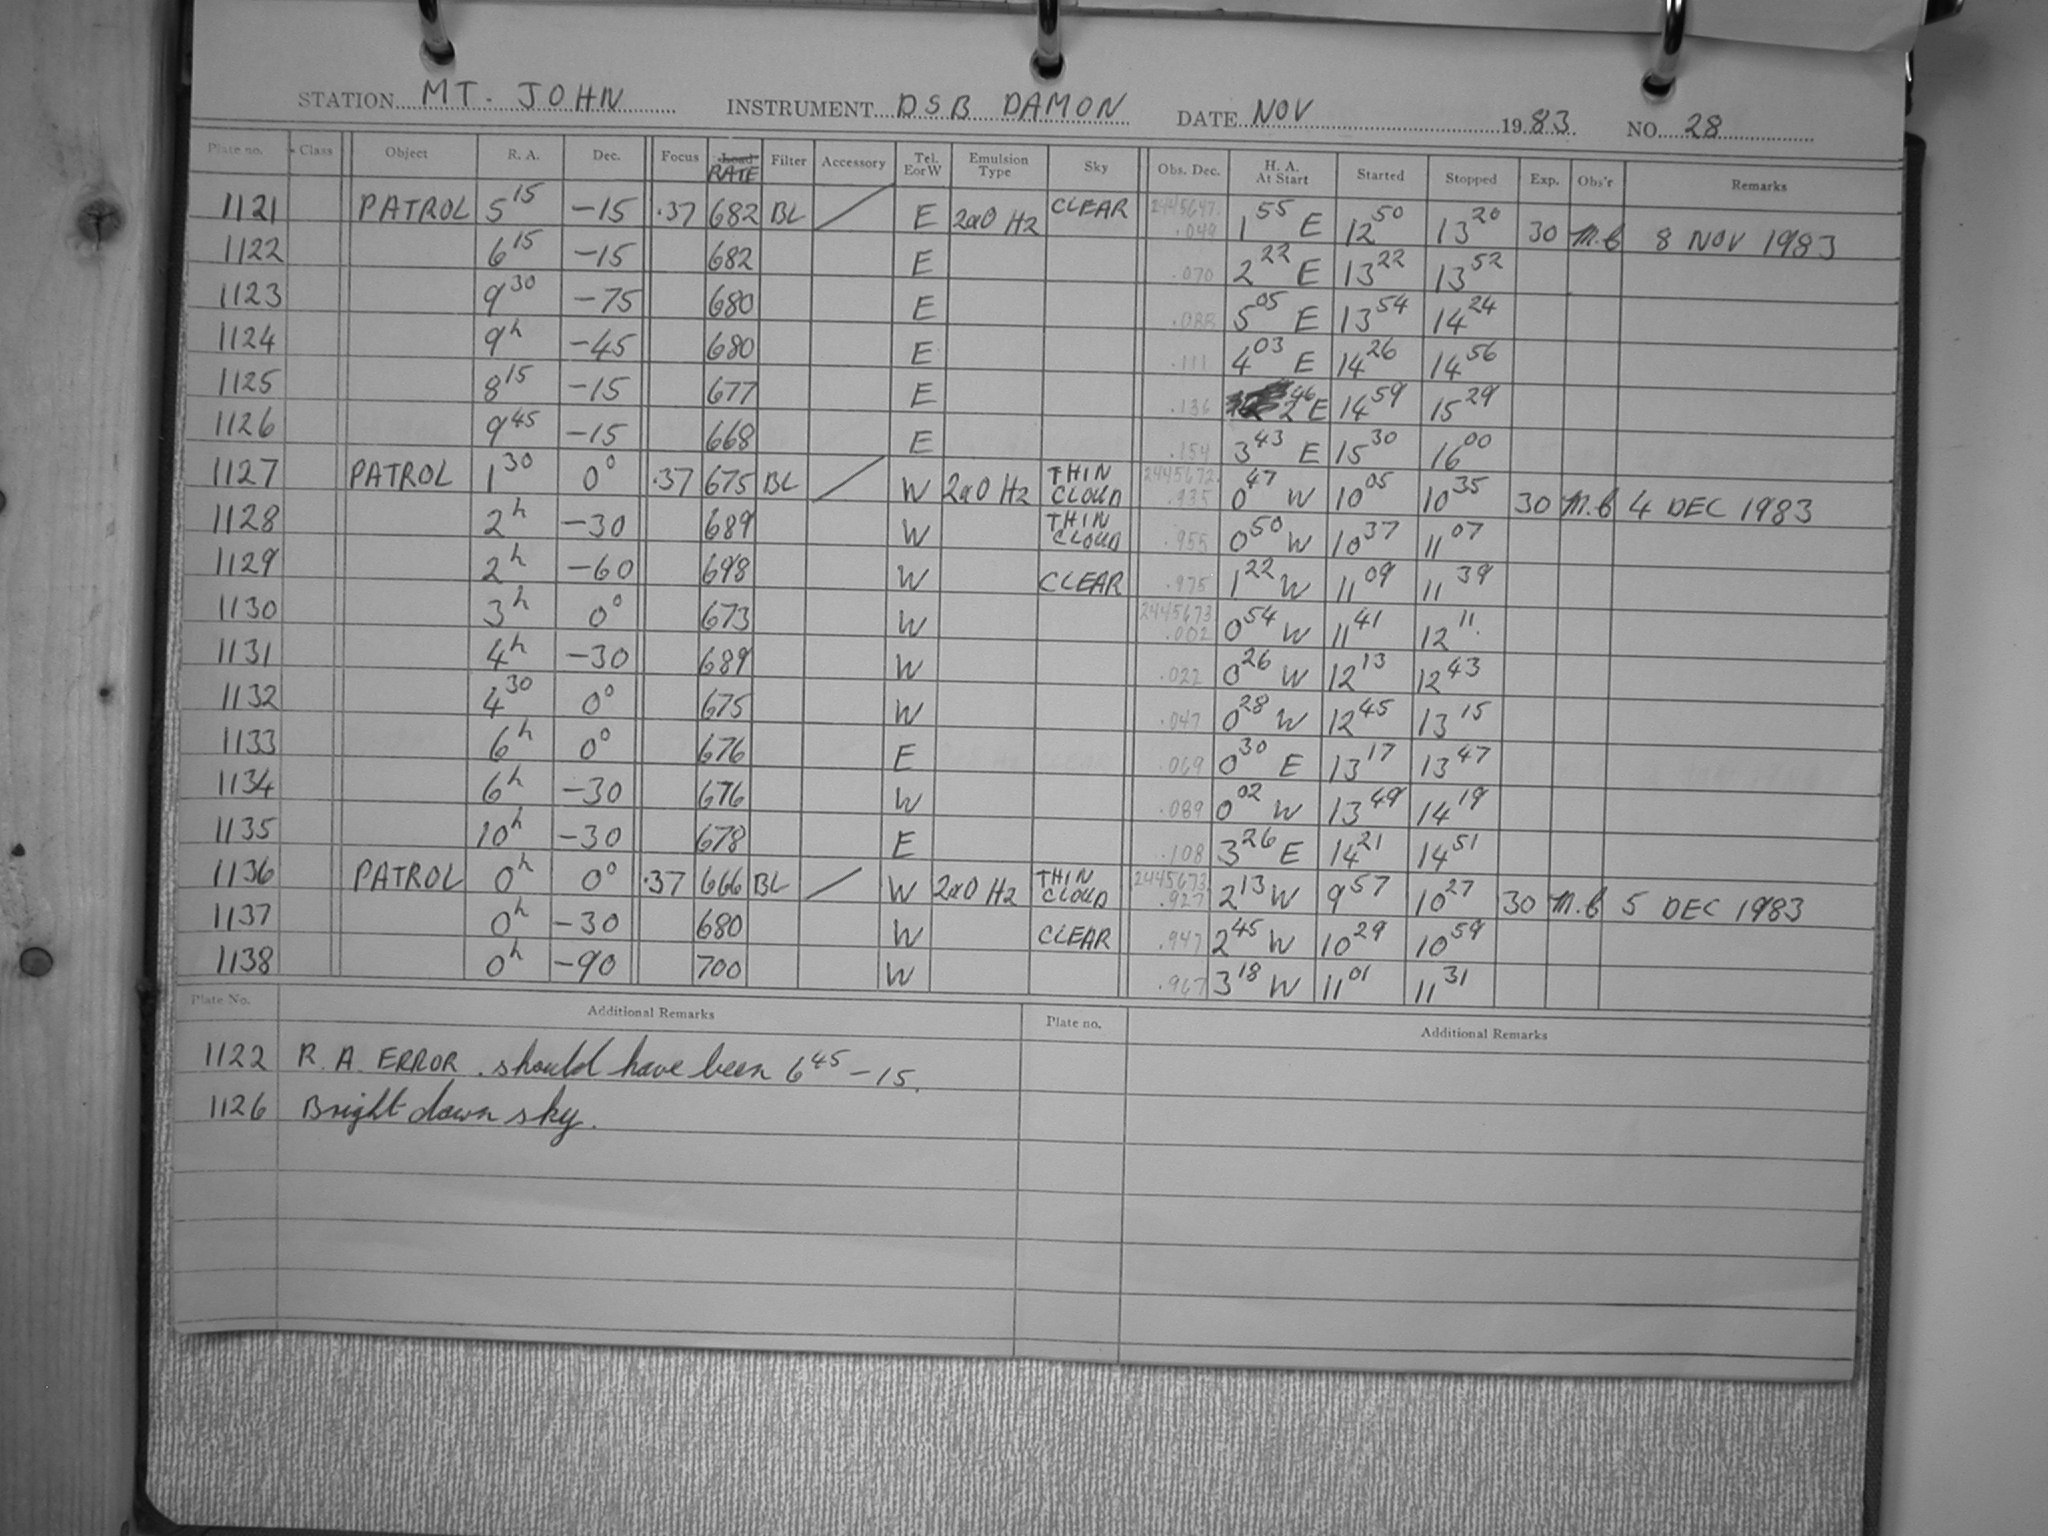 STATION MT. JOHN INSTRUMENT DSB DAMON DATE NOV 1983 NO. 28
Plate no. Class Object R. A. Dec. Focus Load RATE Filter Accessory Tel. E or W Emulsion Type Sky Obs. Dec. H. A. At Start Started Stopped Exp. Obs'r Remarks
1121 PATROL 5 15 -15 .37 682 BL / E 2aO H2 CLEAR 2445647. .049 1 55 E 12 50 13 20 30 M.B 8 NOV 1983
1122 6 15 -15 682 E .070 2 22 E 13 22 13 52
1123 9 30 -75 680 E .088 5 05 E 13 54 14 24
1124 9h -45 680 E .111 4 03 E 14 26 14 56
1125 8 15 -15 677 E .136 2 46 E 14 59 15 29
1126 9 45 -15 668 E .154 3 43 E 15 30 16 00
1127 PATROL 1 30 0° .37 675 BL / W 2aO H2 THIN CLOUD 2445672. .935 0 47 W 10 05 10 35 30 M.B 4 DEC 1983
1128 2h -30 689 W THIN CLOUD .955 0 50 W 10 37 11 07
1129 2h -60 698 W CLEAR .975 1 22 W 11 09 11 39
1130 3h 0° 673 W 2445673 .002 0 54 W 11 41 12 11
1131 4h -30 689 W .022 0 26 W 12 13 12 43
1132 4 30 0° 675 W .047 0 28 W 12 45 13 15
1133 6h 0° 676 E .069 0 30 E 13 17 13 47
1134 6h -30 676 W .089 0 02 W 13 49 14 19
1135 10h -30 678 E .108 3 26 E 14 21 14 51
1136 PATROL 0h 0° .37 666 BL / W 2aO H2 THIN CLOUD 2445673. .927 2 13 W 9 57 10 27 30 M.B 5 DEC 1983
1137 0h -30 680 W CLEAR .947 2 45 W 10 29 10 59
1138 0h -90 700 W .967 3 18 W 11 01 11 31
Plate No. Additional Remarks Plate no. Additional Remarks
1122 R.A. ERROR. should have been 6 45 -15.
1126 Bright dawn sky.